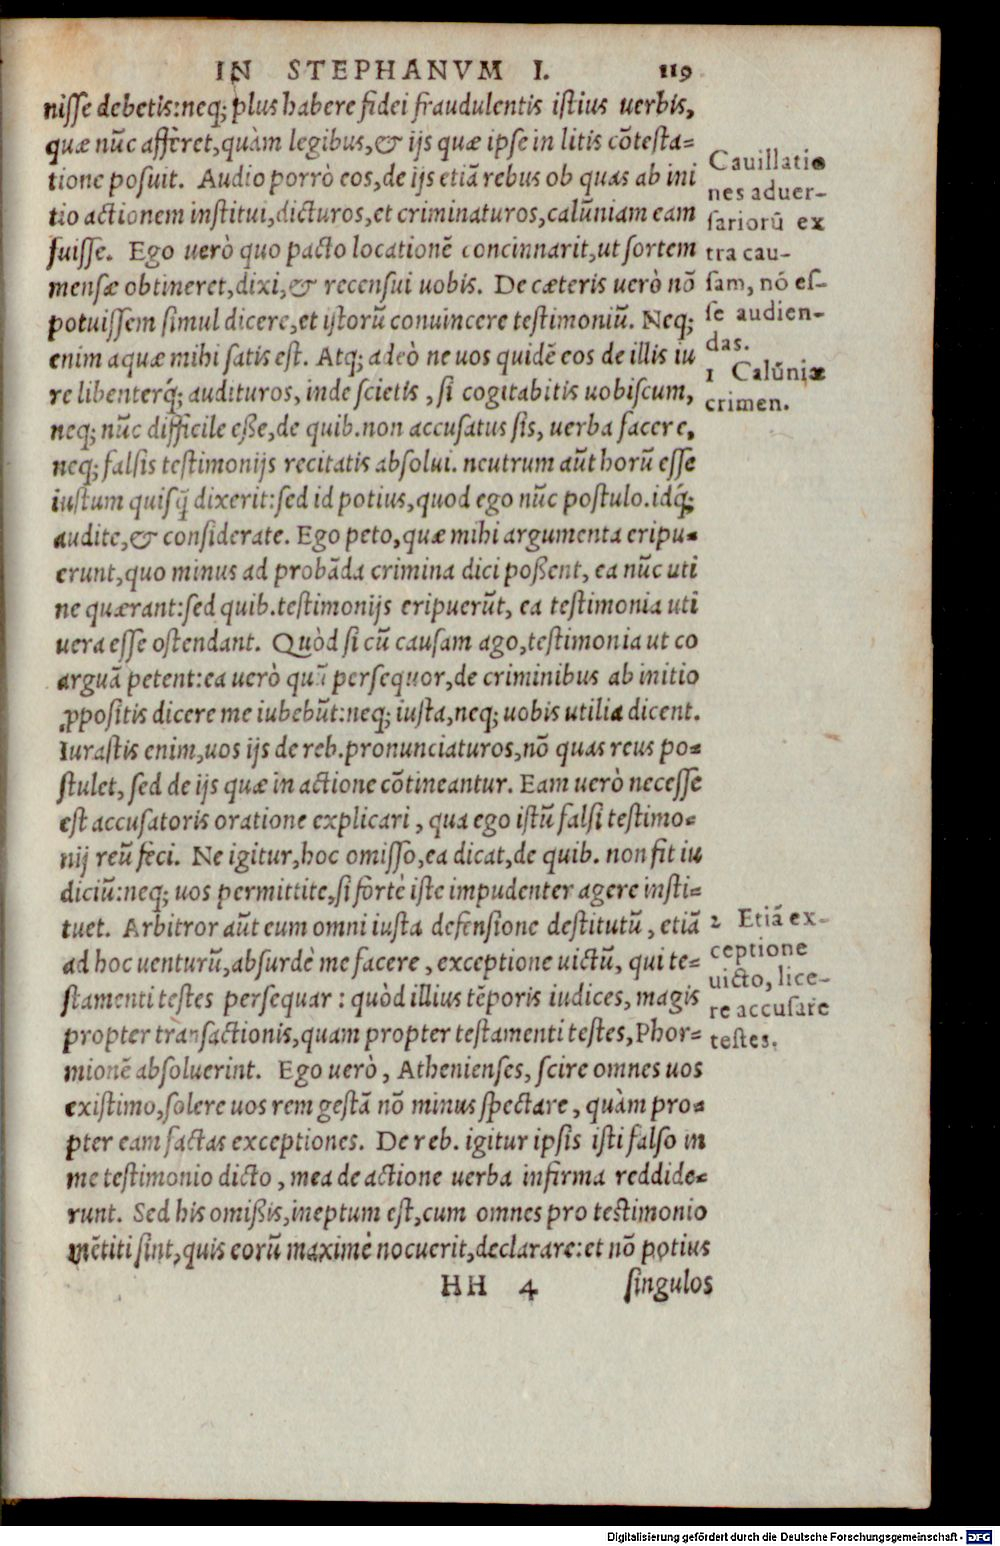 IN STEPHANVM I. 119
nisse debetis:neq; plus habere fidei fraudulentis istius uerbis,
quæ nũc afferet,quàm legibus,& ijs quæ ipse in litis cõtesta-
tione posuit. Audio porrò eos,de ijs etiã rebus ob quas ab ini
tio actionem institui,dicturos,et criminaturos,calũniam eam
fuisse. Ego uerò quo pacto locationẽ concinnarit,ut sortem
mensæ obtineret,dixi,& recensui uobis. De cæteris uerò nõ
potuissem simul dicere,et istorũ conuincere testimoniũ. Neq;
enim aquæ mihi satis est. Atq; adeò ne uos quidẽ eos de illis iu
re libenterq́; audituros, inde scietis, si cogitabitis uobiscum,
neq; nũc difficile eße,de quib.non accusatus sis, uerba facere,
neq; falsis testimonijs recitatis absolui. neutrum aũt horũ esse
iustum quisq̃ dixerit:sed id potius,quod ego nũc postulo.idq́;
audite,& considerate. Ego peto,quæ mihi argumenta eripu-
erunt,quo minus ad probãda crimina dici poßent, ea nũc uti
ne quærant:sed quib.testimonijs eripuerũt, ea testimonia uti
uera esse ostendant. Quòd si cũ causam ago,testimonia ut co
arguã petent:ea uerò quũ persequor,de criminibus ab initio
ꝓpositis dicere me iubebũt:neq; iusta,neq; uobis utilia dicent.
Iurastis enim,uos ijs de reb.pronunciaturos,nõ quas reus po-
stulet, sed de ijs quæ in actione cõtineantur. Eam uerò necesse
est accusatoris oratione explicari, qua ego istũ falsi testimo-
nij reũ feci. Ne igitur,hoc omisso,ea dicat,de quib. non fit iu
diciũ:neq; uos permittite,si fortè iste impudenter agere insti-
tuet. Arbitror aũt eum omni iusta defensione destitutũ, etiã
ad hoc uenturũ,absurdè me facere, exceptione uictũ, qui te-
stamenti testes persequar: quòd illius tẽporis iudices, magis
propter transactionis,quam propter testamenti testes,Phor-
mionẽ absoluerint. Ego uerò, Athenienses, scire omnes uos
existimo,solere uos rem gestã nõ minus spectare, quàm pro-
pter eam factas exceptiones. De reb. igitur ipsis isti falso in
me testimonio dicto, mea de actione uerba infirma reddide-
runt. Sed his omißis,ineptum est,cum omnes pro testimonio
mẽtiti sint,quis eorũ maximè nocuerit,declarare:et nõ potius
HH 4 singulos
Cauillatio
nes aduer-
sariorũ ex
tra cau-
sam, nõ es-
se audien-
das.
1 Calũniæ
crimen.
2 Etiã ex-
ceptione
uicto, lice-
re accusare
testes.
Digitalisierung gefördert durch die Deutsche Forschungsgemeinschaft - DFG